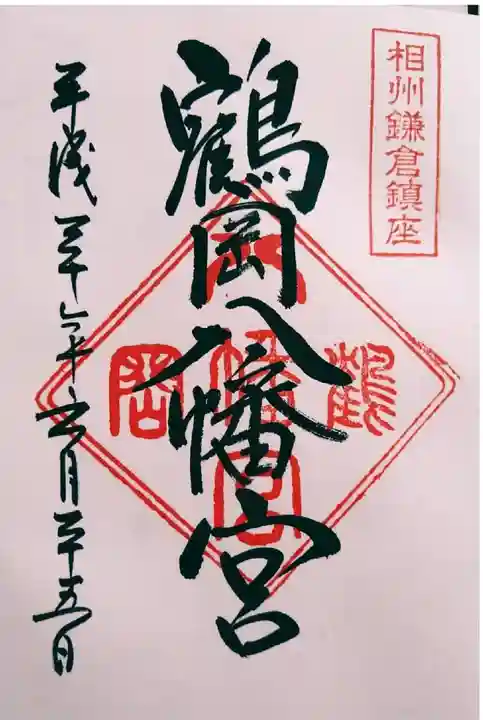 相州鎌倉鎮座
鶴岡八幡宮
平成三十年六月二十五日
鶴
八幡宮
岡